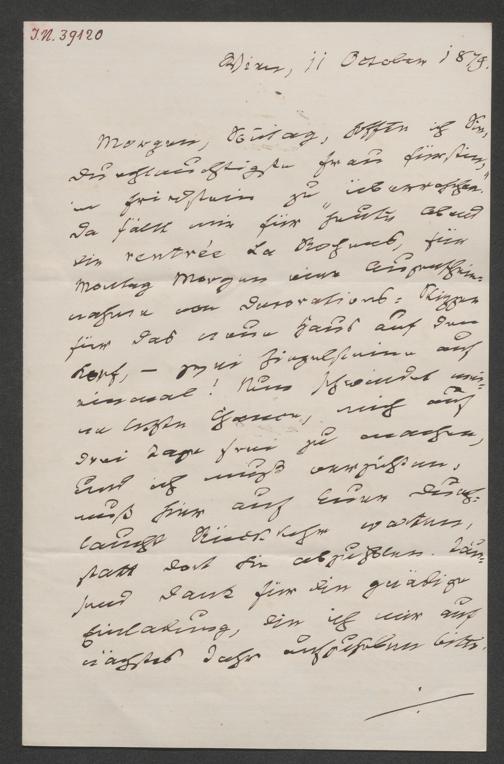 I.N. 39120
Wien, 11 October 1879.
Morgen, Sontag, hoffte ich Sie,
durchlauchtigste Frau Fürstin,
in Friedstein zu „überraschen."
Da fällt mir für heute Abend
die rentrée La Roches, für
Montag Morgen eine
nahme von Decorations-Skizzen
für das neue Haus auf den
Kopf, — zwei Ziegelsteine auf
einmal! Nun schwindet mei-
ne letzte Chance, mich auf
drei Tage frei zu machen,
und ich muß verzichten,
muß hier auf Euer Durch-
laucht Rückkehr warten,
statt dort Sie abzuholen. Tau-
send Dank für die gnädige
Einladung, die ich mir auf
nächstes Jahr aufzuheben bitte.